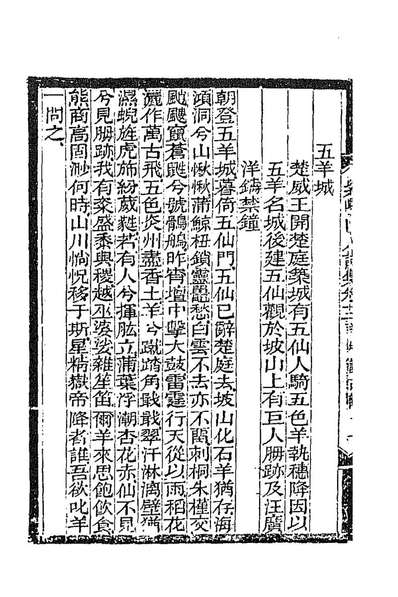 五羊城
楚威王開楚庭築城有五仙人騎五色羊執穗降因以
五羊名城後建五仙觀於坡山上有巨人胟跡及汪廣
洋鑄禁鐘
朝登五羊城暮倚五仙門五仙已辭楚庭去坡山化石羊猶存海
澒洞兮山愀愀蒲鯨杻鎖靈鼉愁白雲不去亦不閟刺桐朱槿交
颼颼籋蒼龍兮號鶻鵃昨宵壇中擊大鼓雷霆行天從以雨稻花
灑作萬古飛五色炎州盡香土羊兮蹴踏角戢戢翠汗淋漓壁猶
濕蜺旌虎旆紛葳蕤若有人兮揮肱立蒲葉浮潮杏花赤仙不見
兮見胟跡我有粢盛黍與稷越巫婆娑雜笙笛爾羊來思飽飲食
熊商高固渺何時山川惝怳移于斯星精嶽帝降者誰吾欲叱羊
一問之